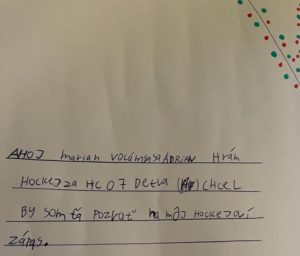 AHOJ marian volámsasa ADRIAN Hrám
HOCKEJ za HC 07 Detva CHCEL
BY som ťa pozvať na môj HOCKEJoví
zápas.